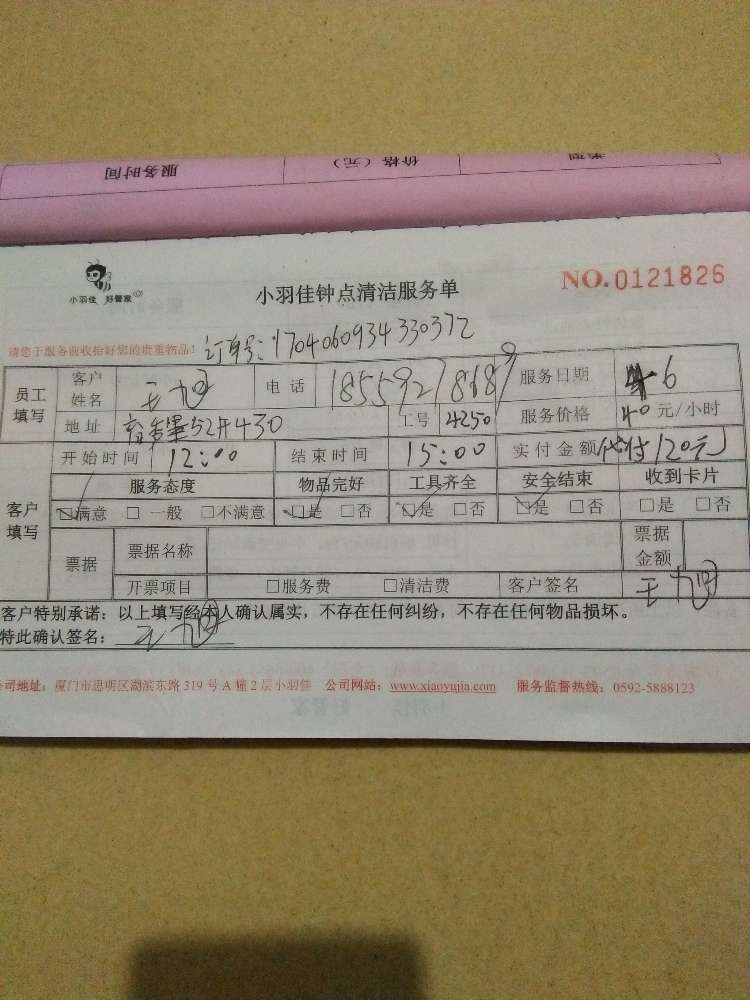 服务时间 价格（元） 类型
小羽佳 好管家
小羽佳钟点清洁服务单
NO.0121826
请您于服务前收拾好您的贵重物品！ 订单号：1704060934330372
员工填写 客户姓名 王 电话 18559278689 服务日期 4.6
地址 430 工号 4250 服务价格 40 元/小时
开始时间 12:00 结束时间 15:00 实付金额 代付120元
客户填写 服务态度 物品完好 工具齐全 安全结束 收到卡片
☑满意 □一般 □不满意 ☑是 □否 ☑是 □否 ☑是 □否 □是 □否
票据 票据名称 票据金额
开票项目 □服务费 □清洁费 客户签名 王
客户特别承诺：以上填写经本人确认属实，不存在任何纠纷，不存在任何物品损坏。
特此确认签名： 王
公司地址：厦门市思明区湖滨东路 319 号 A 幢 2 层小羽佳 公司网站：www.xiaoyujia.com 服务监督热线：0592-5888123